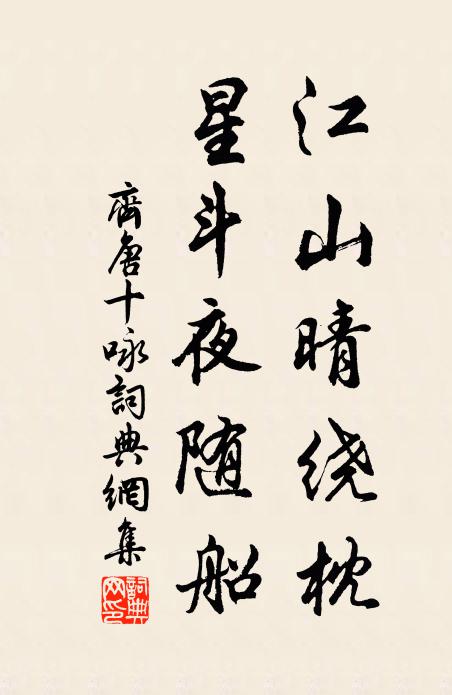 江山晴绕枕
星斗夜随船
齊唐十咏詞典網集
詞典网印